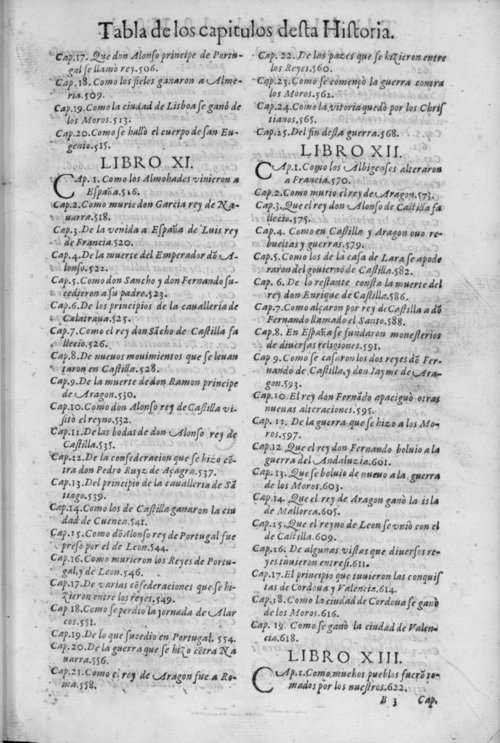 Tabla de los capitulos desta Historia.
Cap.17. Que don Alonso principe de Portu
gal se llamò rey.506.
Cap.18. Como los fieles ganaron a Alme
ria.509.
Cap.19.Como la ciudad de Lisboa se ganò de
los Moros.513.
Cap.20.Como se hallò el cuerpo de san Eu
genio.515.
LIBRO XI.
CAp.1. Como los Almohades vinieron a
España.516.
Cap.2.Como murio don Garcia rey de Na
uarra.518.
Cap.3. De la venida a España de Luis rey
de Francia.520.
Cap.4.De la muerte del Emperador dõ A
lonso.522.
Cap.5.Como don Sancho y don Fernando su
cedieron a su padre.523.
Cap.6.De los principes de la caualleria de
Calatraua.525.
Cap.7.Como el rey don Sãcho de Castilla fa
llecio.526.
Cap.8.De nueuos mouimientos que se leuan
taron en Castilla.528.
Cap.9.De la muerte de don Ramon principe
de Aragon.530.
Cap.10.Como don Alonso rey de Castilla vi
sitò el reyno.532.
Cap.11.De las bodas de don Alonso rey de
Castilla.535.
Cap.12.De la confederacion que se hizo cõ
tra don Pedro Ruyz de Açagra.537.
Cap.13.Del principio de la caualleria de Sã
tiago.539.
Cap.14.Como los de Castilla ganaron la ciu
dad de Cuenca.541.
Cap.15.Como dõ Alonso rey de Portugal fue
preso por el de Leon.544.
Cap.16.Como murieron los Reyes de Portu-
gal,y de Leon.546.
Cap.17.De varias cõfederaciones que se hi-
zieron entre los reyes.549.
Cap 18.Como se perdio la jornada de Alar
cos.551.
Cap.19.De lo que sucedio en Portugal. 554.
Cap.20.De la guerra que se hizo cõtra Na
uarra.556.
Cap.21.Como el rey de Aragon fue a Ro-
ma.558.
Cap. 22. De las pazes que se hizieron entre
los Reyes.560.
Cap.23.Como se començò la guerra contra
los Moros.562.
Cap.24.Como la vitoria quedò por los Chris
tianos.565.
Cap.25.Del fin desta guerra.568.
LIBRO XII.
CAp.1.Como los Albigenses alteraron
a Francia.570.
Cap.2.Como murio el rey de Aragon.573.
Cap.3.Que el rey don Alonso de Castilla fa
llecio.575.
Cap.4. Como en Castilla y Aragon ouo re-
bueltas y guerras.579.
Cap.5.Como los de la casa de Lara se apode
raron del gouierno de Castilla.582.
Cap.6. De lo restante hasta la muerte del
rey don Enrique de Castilla.586.
Cap.7.Como alçaron por rey de Castilla a dõ
Fernando llamado el Santo.588.
Cap.8. En España se fundaron monesterios
de diuersas religiones.591.
Cap 9.Como se casaron los dos reyes dõ Fer-
nando de Castilla,y don Iayme de Ara-
gon.593.
Cap.10.El rey don Fernãdo apaciguò otras
nueuas alteraciones.595.
Cap. 11. De la guerra que se hizo a los Mo-
ros.597.
Cap.12 Que el rey don Fernando boluio a la
guerra del Andaluzia.601.
Cap.13. Que se boluio de nueuo a la guerra
de los Moros.603.
Cap.14. Que el rey de Aragon ganò la isla
de Mallorca.605.
Cap.15.Que el reyno de Leon se vniò con el
de Castilla.609.
Cap.16. De algunas vistas que diuersos re-
yes tuuieron entre si.611.
Cap.17.El principio que tuuieron las conquis
tas de Cordoua y Valencia.614.
Cap.18.Como la ciudad de Cordoua se ganò
de los Moros.616.
Cap.19. Como se ganò la ciudad de Valen-
cia.618.
LIBRO XIII.
CAp.1.Como muchos pueblos fuerõ to-
mados por los nuestros.622.
B 3 Cap.